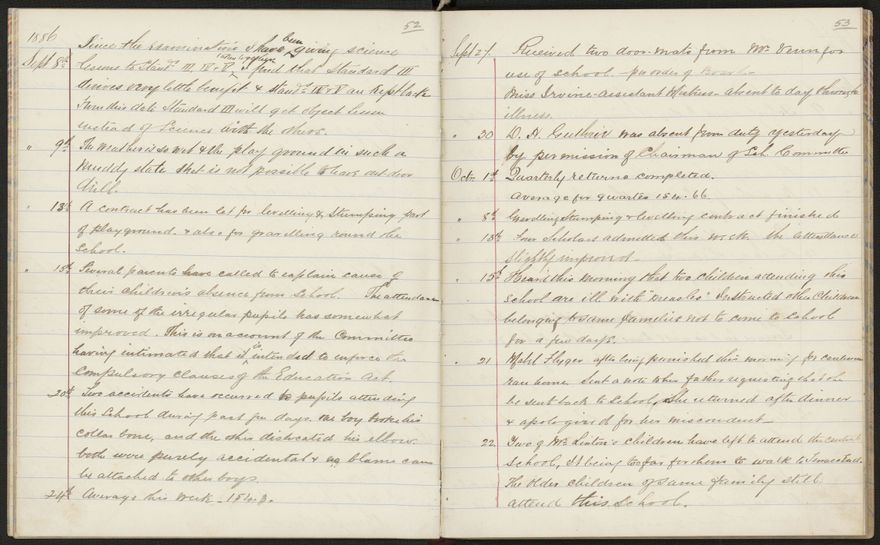 52
1886
Since the examination I have been giving science
Sept 8th lessons to Standds III, IV & V together I find that Standard III
derives very little benefit & Standds IV & V are kept back
From this date Standard III will get object lesson
instead of Science with the others.
" 9th The weather is so wet & the play ground in such a
muddy state that is not possible to have out door
drill.
" 13th A contract has been let for levelling & stumping part
of playground & also for gravelling round the
School.
" 15th Several parents have called to explain cause of
their children's absence from School. The attendance
of some of the irregular pupils has somewhat
improved. This is on account of the Committee
having intimated that it is intended to enforce the
compulsory clauses of the Education Act.
" 20th Two accidents have occurred to pupils attending
this School during past few days. One boy broke his
collar bone, and the other dislocated his elbow.
both were purely accidental & no blame can
be attached to other boys.
24th Average this week - 154.
53
Sept 27 Received two door mats from Mr Venn for
use of school
Miss Irvine assistant Mistress absent to day through
illness.
" 30 D. A. Guthrie was absent from duty yesterday
by permission of Chairman of Sch. Committee
Octr 1st Quarterly returns completed.
Average for quarter 154.66
" 8th Gravelling Stumping & levelling contract finished
" 13th Four Scholars admitted this week. the attendance
slightly improved
" 15th Heard this morning that two children attending this
School are ill with "measles" Instructed other Children
belonging to same families not to come to School
for a few days.
" 21 Mabel after being punished this morning for
ran home. Sent a note to her father requesting that she
be sent back to School, She returned after dinner
& apologised for her misconduct
22 Two of Mr children have left to attend the central
School, It being too far for them to walk to Terrace End.
The older children of same family still
attend this School.